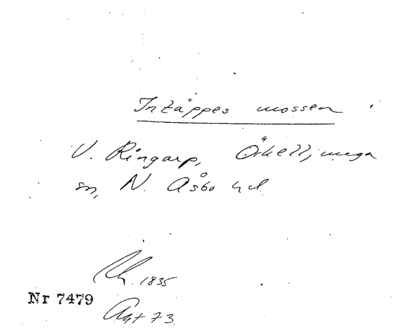 Intäppes mossen
V. Ringarp, Örkelljunga
sn, N. Åsbo hd
1835
Nr 7479
Akt 73